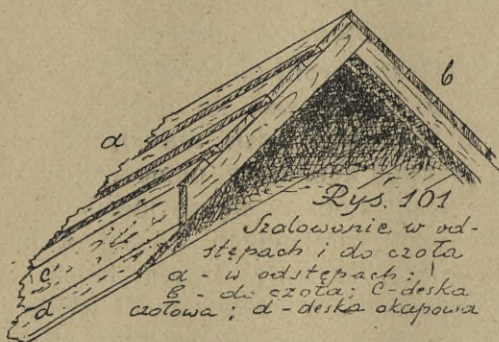 a
b
c
d
Rys. 101
Szalowanie w od-
stępach i do czoła
a - w odstępach;
B - do czoła; C - deska
czołowa; d - deska okapowa